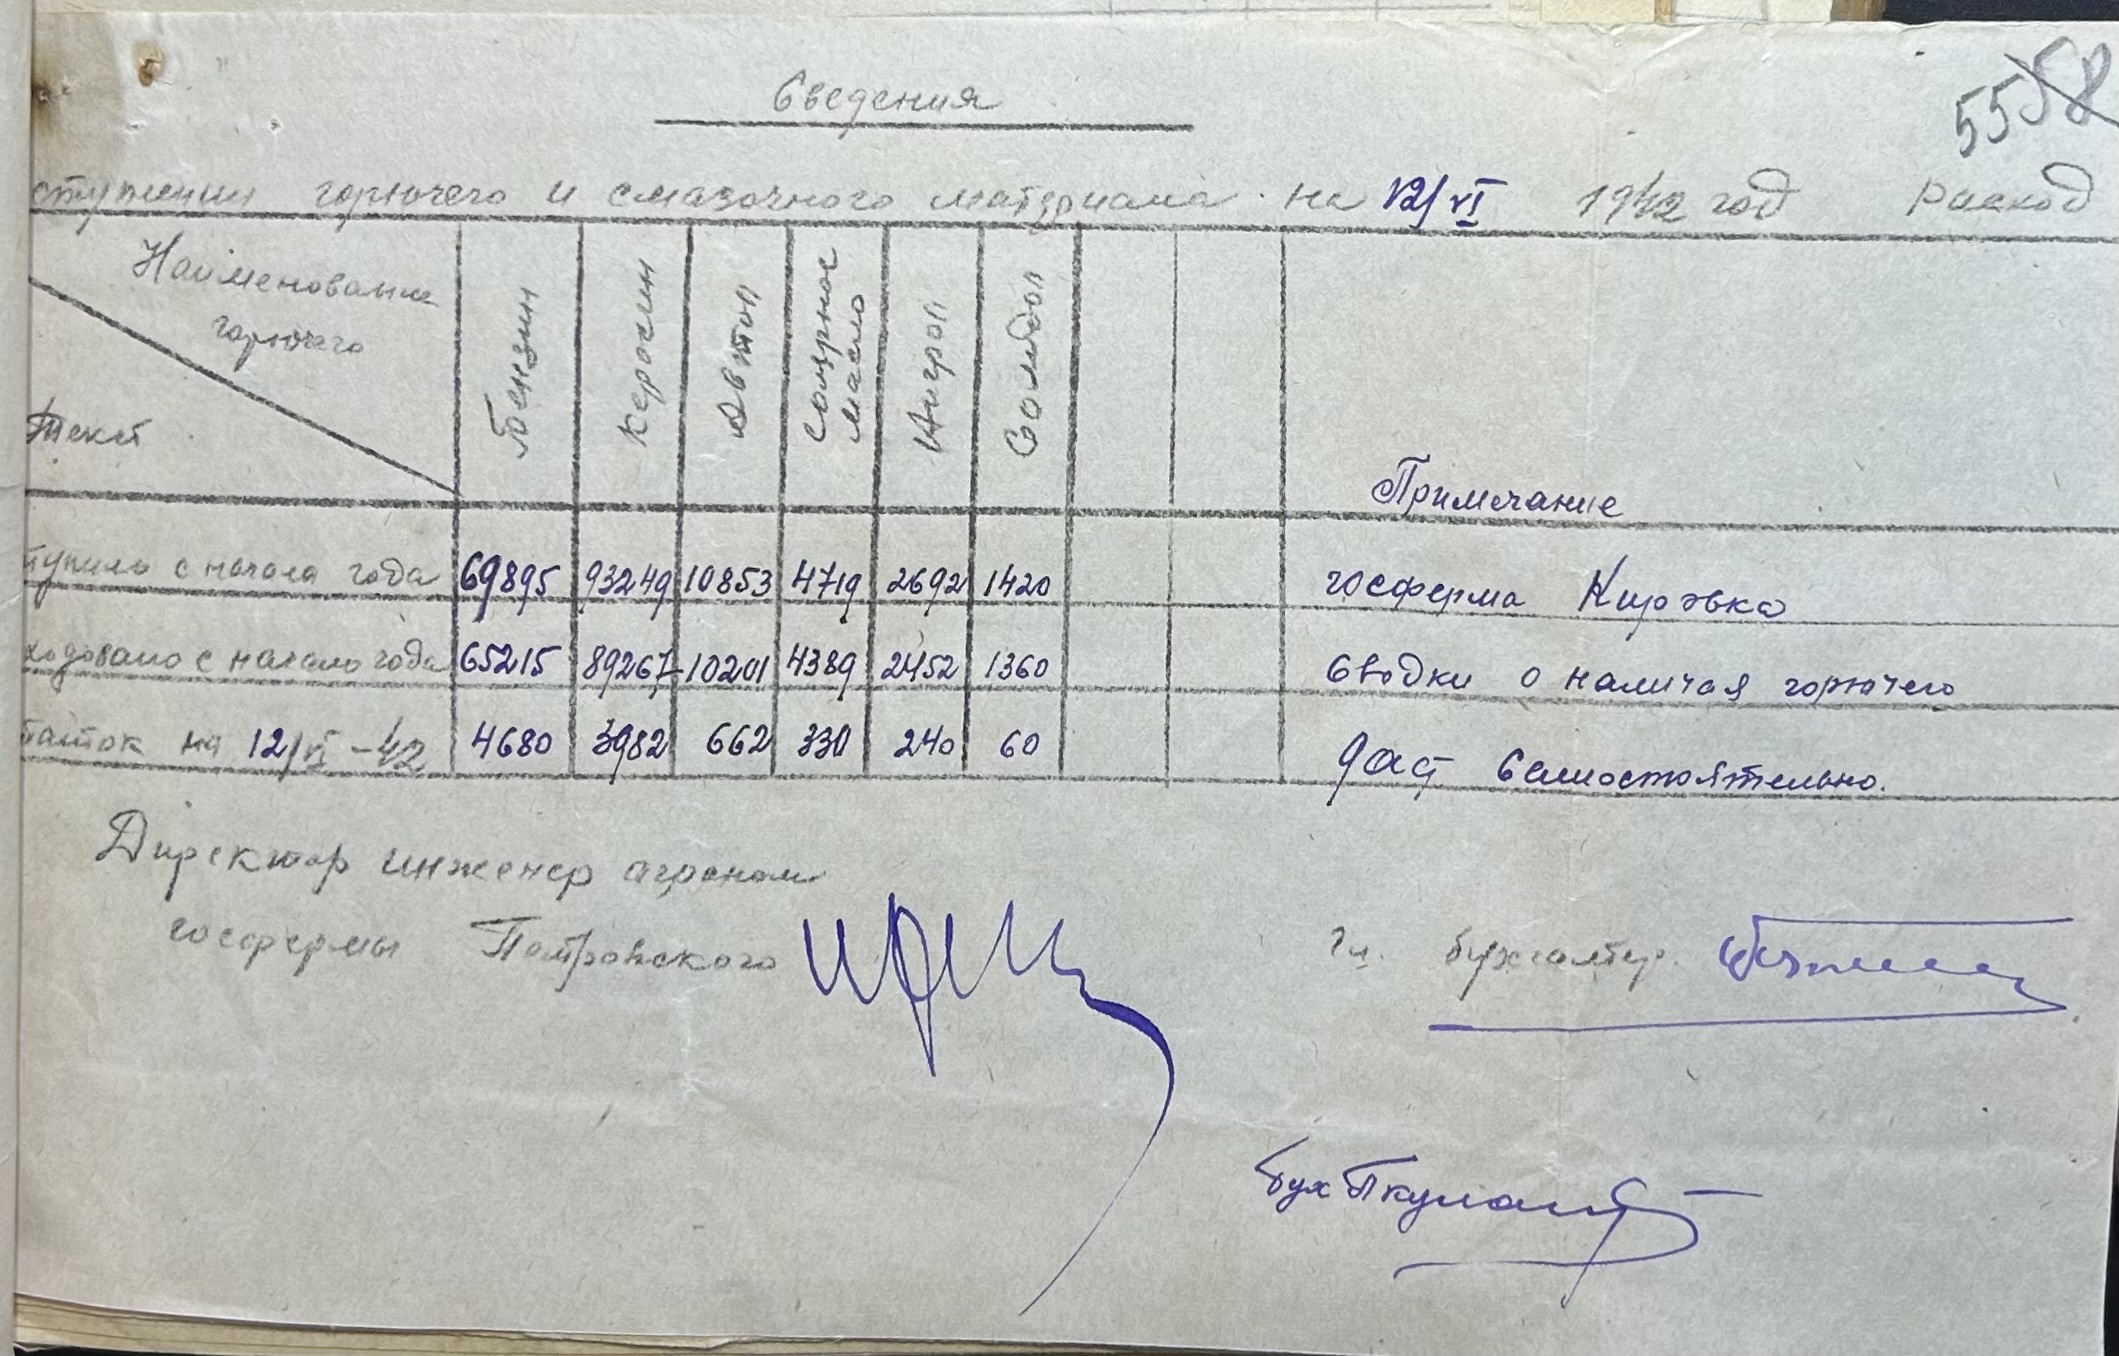 55 58
Сведения
ступлении горючего и смазочного материала на 12/VI 1942 год расход
Наименование горючего
Текст
Бензин
Керосин
Автол
Солярное масло
Нигрол
Солидол
Примечание
тупило с начала года 69895 93249 10853 4719 2692 1420 госферма Кировка
ходовано с начало года 65215 89267 10201 4389 2452 1360 Сводки о наличая горючего
таток на 12/VI-42 4680 3982 662 330 240 60 даст самостоятельно.
Директор инженер агроном
госфермы Петровского
Гл. бухгалтер.
Бух